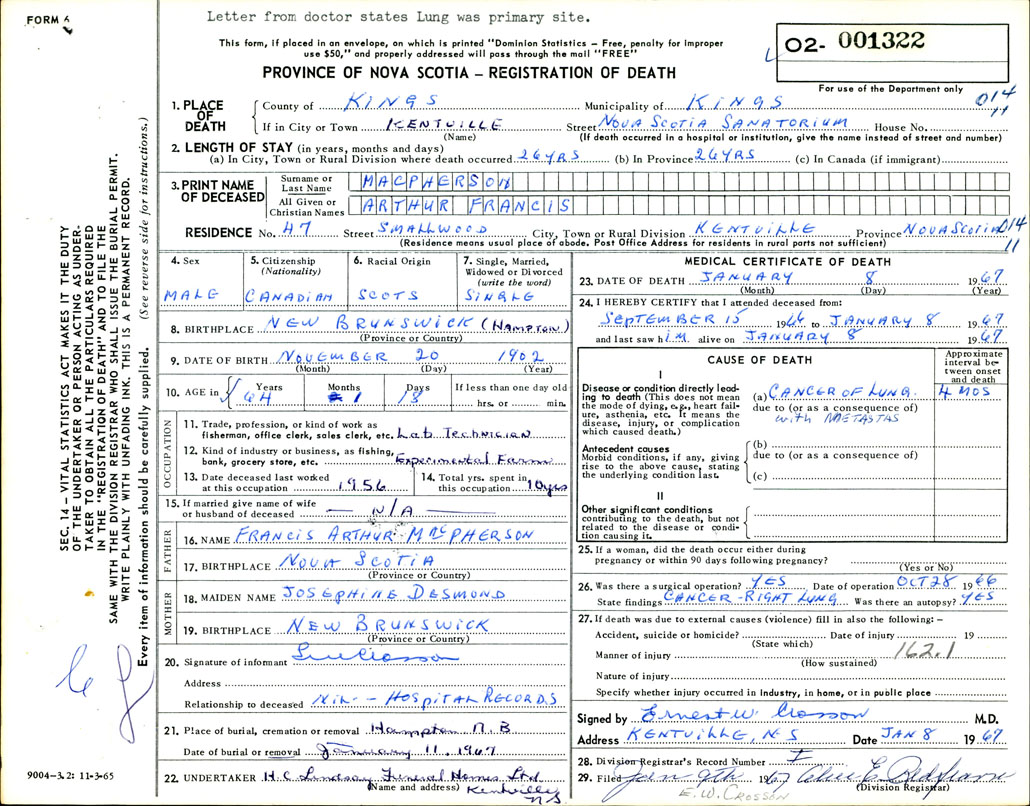 FORM 6
Letter from doctor states Lung was primary site.
This form, if placed in an envelope, on which is printed "Dominion Statistics – Free, penalty for improper
use $50," and properly addressed will pass through the mail "FREE"
O2- 001322
PROVINCE OF NOVA SCOTIA – REGISTRATION OF DEATH
For use of the Department only
1. PLACE OF DEATH
County of KINGS Municipality of KINGS 014
11
If in City or Town KENTVILLE Street NOVA SCOTIA SANATORIUM House No.
(Name) (If death occurred in a hospital or institution, give the name instead of street and number)
2. LENGTH OF STAY (in years, months and days)
(a) In City, Town or Rural Division where death occurred. 26 YRS (b) In Province 26 YRS (c) In Canada (if immigrant)
3. PRINT NAME OF DECEASED
Surname or Last Name MACPHERSON
All Given or Christian Names ARTHUR FRANCIS
RESIDENCE No. 47 Street SMALLWOOD City, Town or Rural Division KENTVILLE Province NOVA SCOTIA 014
(Residence means usual place of abode. Post Office Address for residents in rural parts not sufficient) 11
4. Sex
MALE
5. Citizenship
(Nationality)
CANADIAN
6. Racial Origin
SCOTS
7. Single, Married,
Widowed or Divorced
(write the word)
SINGLE
8. BIRTHPLACE NEW BRUNSWICK (HAMPTON)
(Province or Country)
9. DATE OF BIRTH NOVEMBER 20 1902
(Month) (Day) (Year)
10. AGE in Years Months Days If less than one day old
64 1 18 hrs. or min.
OCCUPATION
11. Trade, profession, or kind of work as
fisherman, office clerk, sales clerk, etc. Lab Technician
12. Kind of industry or business, as fishing,
bank, grocery store, etc. Experimental Farm
13. Date deceased last worked
at this occupation 1956
14. Total yrs. spent in
this occupation 10 yrs
15. If married give name of wife
or husband of deceased N/A
FATHER
16. NAME FRANCIS ARTHUR MACPHERSON
17. BIRTHPLACE NOVA SCOTIA
(Province or Country)
MOTHER
18. MAIDEN NAME JOSEPHINE DESMOND
19. BIRTHPLACE NEW BRUNSWICK
(Province or Country)
20. Signature of informant
Address
Relationship to deceased NIL - HOSPITAL RECORDS
21. Place of burial, cremation or removal Hampton N.B
Date of burial or removal January 11, 1967
22. UNDERTAKER H.C. Lindsay Funeral Homes Ltd
(Name and address) Kentville
N.S
MEDICAL CERTIFICATE OF DEATH
23. DATE OF DEATH JANUARY 8 1967
(Month) (Day) (Year)
24. I HEREBY CERTIFY that I attended deceased from:
SEPTEMBER 15 1966 to JANUARY 8 1967
and last saw him alive on JANUARY 8 1967
CAUSE OF DEATH
Approximate
interval be-
tween onset
and death
I
Disease or condition directly lead-
ing to death (This does not mean
the mode of dying, e.g., heart fail-
ure, asthenia, etc. It means the
disease, injury, or complication
which caused death.)
(a) CANCER OF LUNG 4 MOS
due to (or as a consequence of)
with METASTAS
Antecedent causes
Morbid conditions, if any, giving
rise to the above cause, stating
the underlying condition last.
(b)
due to (or as a consequence of)
(c)
II
Other significant conditions
contributing to the death, but not
related to the disease or condi-
tion causing it.
25. If a woman, did the death occur either during
pregnancy or within 90 days following pregnancy?
(Yes or No)
26. Was there a surgical operation? YES Date of operation OCT 28 1966
State findings CANCER - RIGHT LUNG Was there an autopsy? YES
27. If death was due to external causes (violence) fill in also the following: –
Accident, suicide or homicide? Date of injury 19
(State which)
Manner of injury 162.1
(How sustained)
Nature of injury
Specify whether injury occurred in Industry, in home, or in public place
Signed by Ernest W Crosson M.D.
Address KENTVILLE, N S Date JAN 8 1967
28. Division Registrar's Record Number I
29. Filed Jan 9th 1967
(Division Registrar)
E.W. CROSSON
SEC. 14 – VITAL STATISTICS ACT MAKES IT THE DUTY
OF THE UNDERTAKER OR PERSON ACTING AS UNDER-
TAKER TO OBTAIN ALL THE PARTICULARS REQUIRED
IN THE "REGISTRATION OF DEATH" AND TO FILE THE
SAME WITH THE DIVISION REGISTRAR WHO SHALL ISSUE THE BURIAL PERMIT.
WRITE PLAINLY WITH UNFADING INK. THIS IS A PERMANENT RECORD.
Every item of information should be carefully supplied. (See reverse side for instructions.)
9004–3.2: 11-3-65